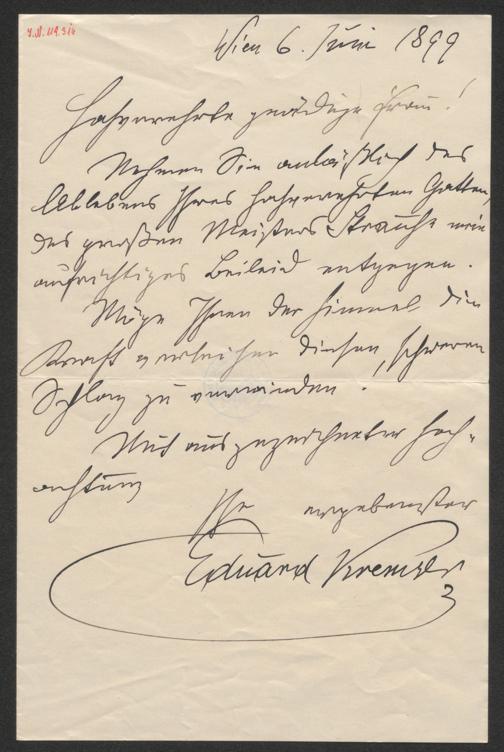 I.N. 119.316
Wien 6. Juni 1899
Hochverehrte gnädige Frau!
Nehmen Sie anläßlich des
Ablebens Ihres hochverehrten Gatten,
des großen Meisters Strauß mein
aufrichtiges Beileid entgegen.
Möge Ihnen der Himmel die
Kraft verleihen diesen, schweren
Schlag zu verwinden.
Mit ausgezeichneter Hoch-
achtung
Ihr ergebenster
Eduard Kremser